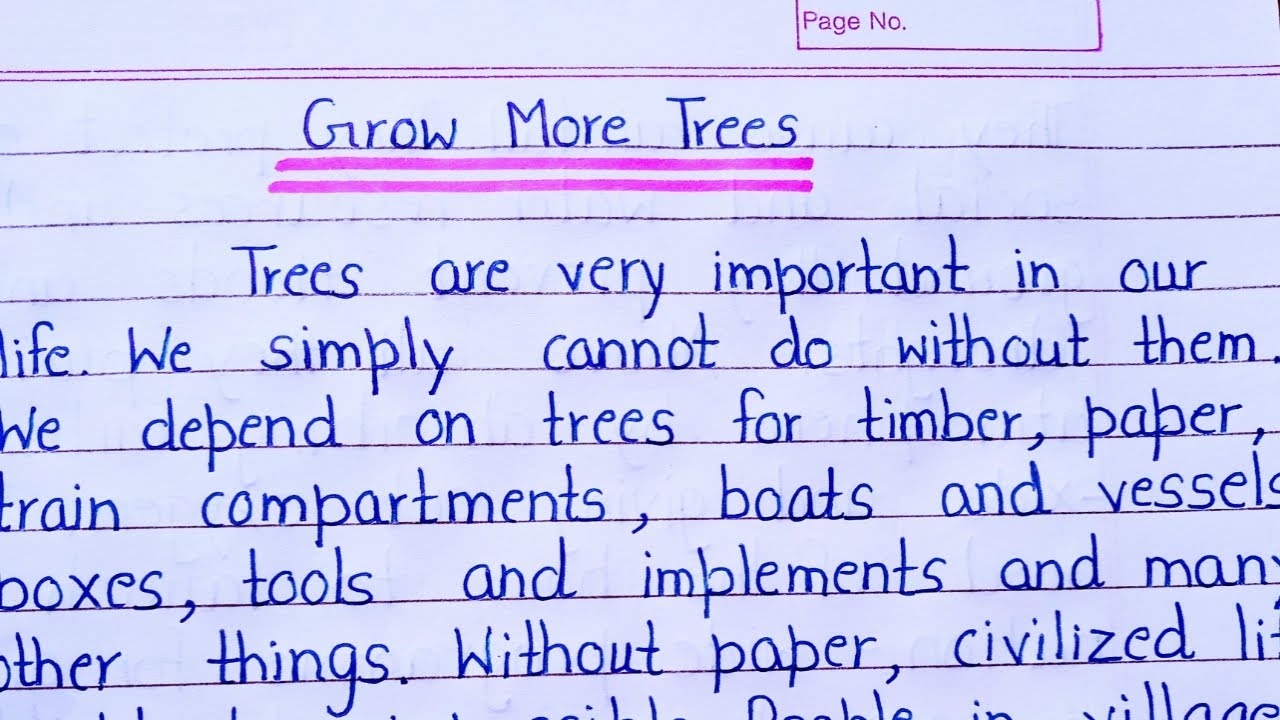 Page No.
Grow More Trees
Trees are very important in our
life. We simply cannot do without them.
We depend on trees for timber, paper,
train compartments, boats and vessels
boxes, tools and implements and many
other things. Without paper, civilized lif
in village